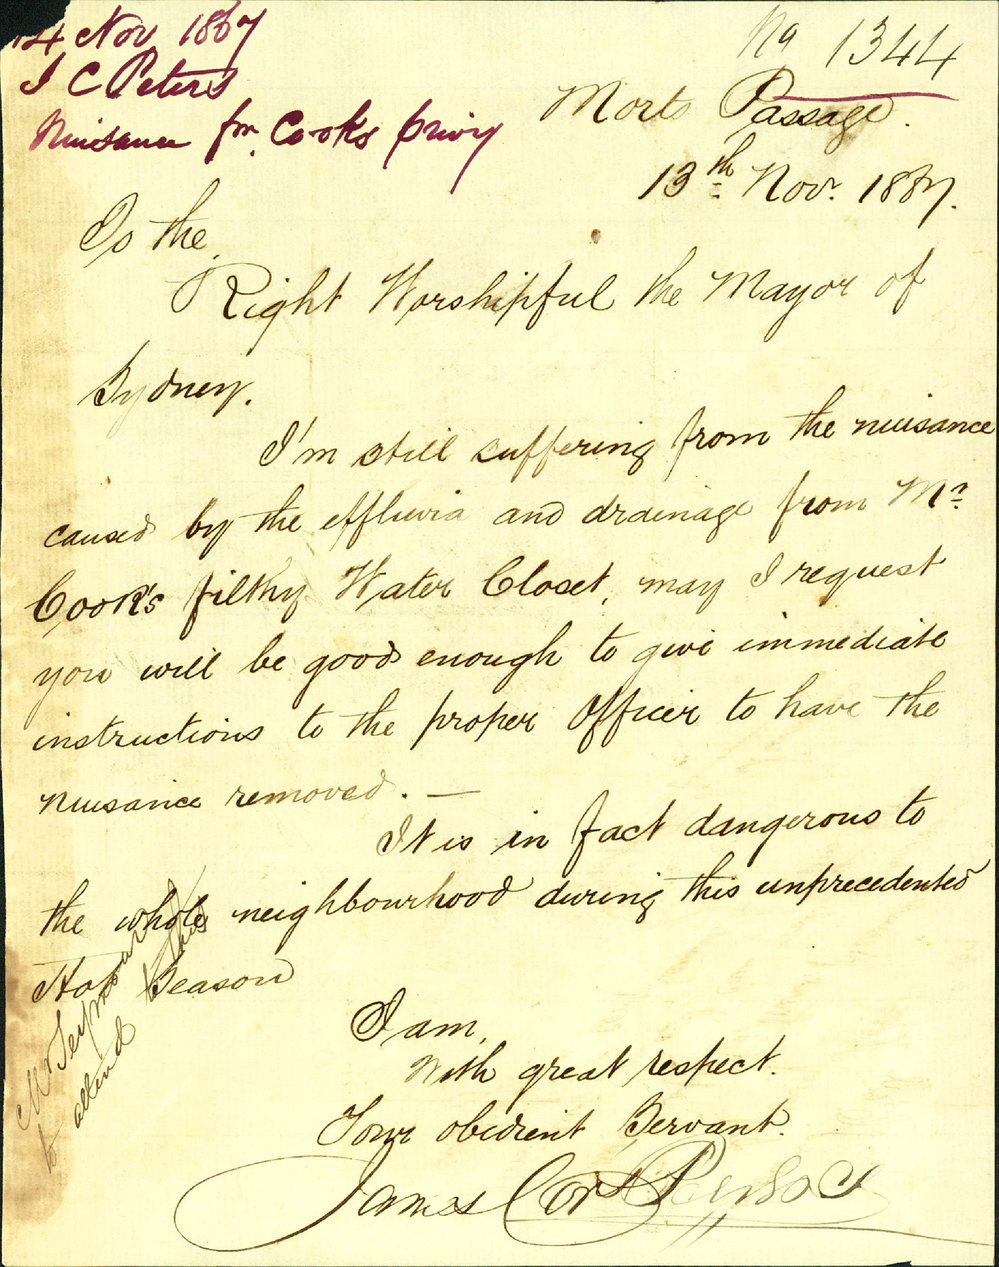 14 Nov 1867
J C Peters
Nuisance fm. Cooks privy
No 1344
Morts Passage.
13th Nov. 1867.
To the
Right Worshipful the Mayor of
Sydney.
I'm still suffering from the nuisance
caused by the effluvia and drainage from Mr
Cook's filthy Water Closet, may I request
you will be good enough to give immediate
instructions to the proper Officer to have the
nuisance removed. —
It is in fact dangerous to
the whole neighbourhood during this unprecedented
Hot Season
I am,
With great respect.
Your obedient Servant.
James
Mr Seymour
to attend to this